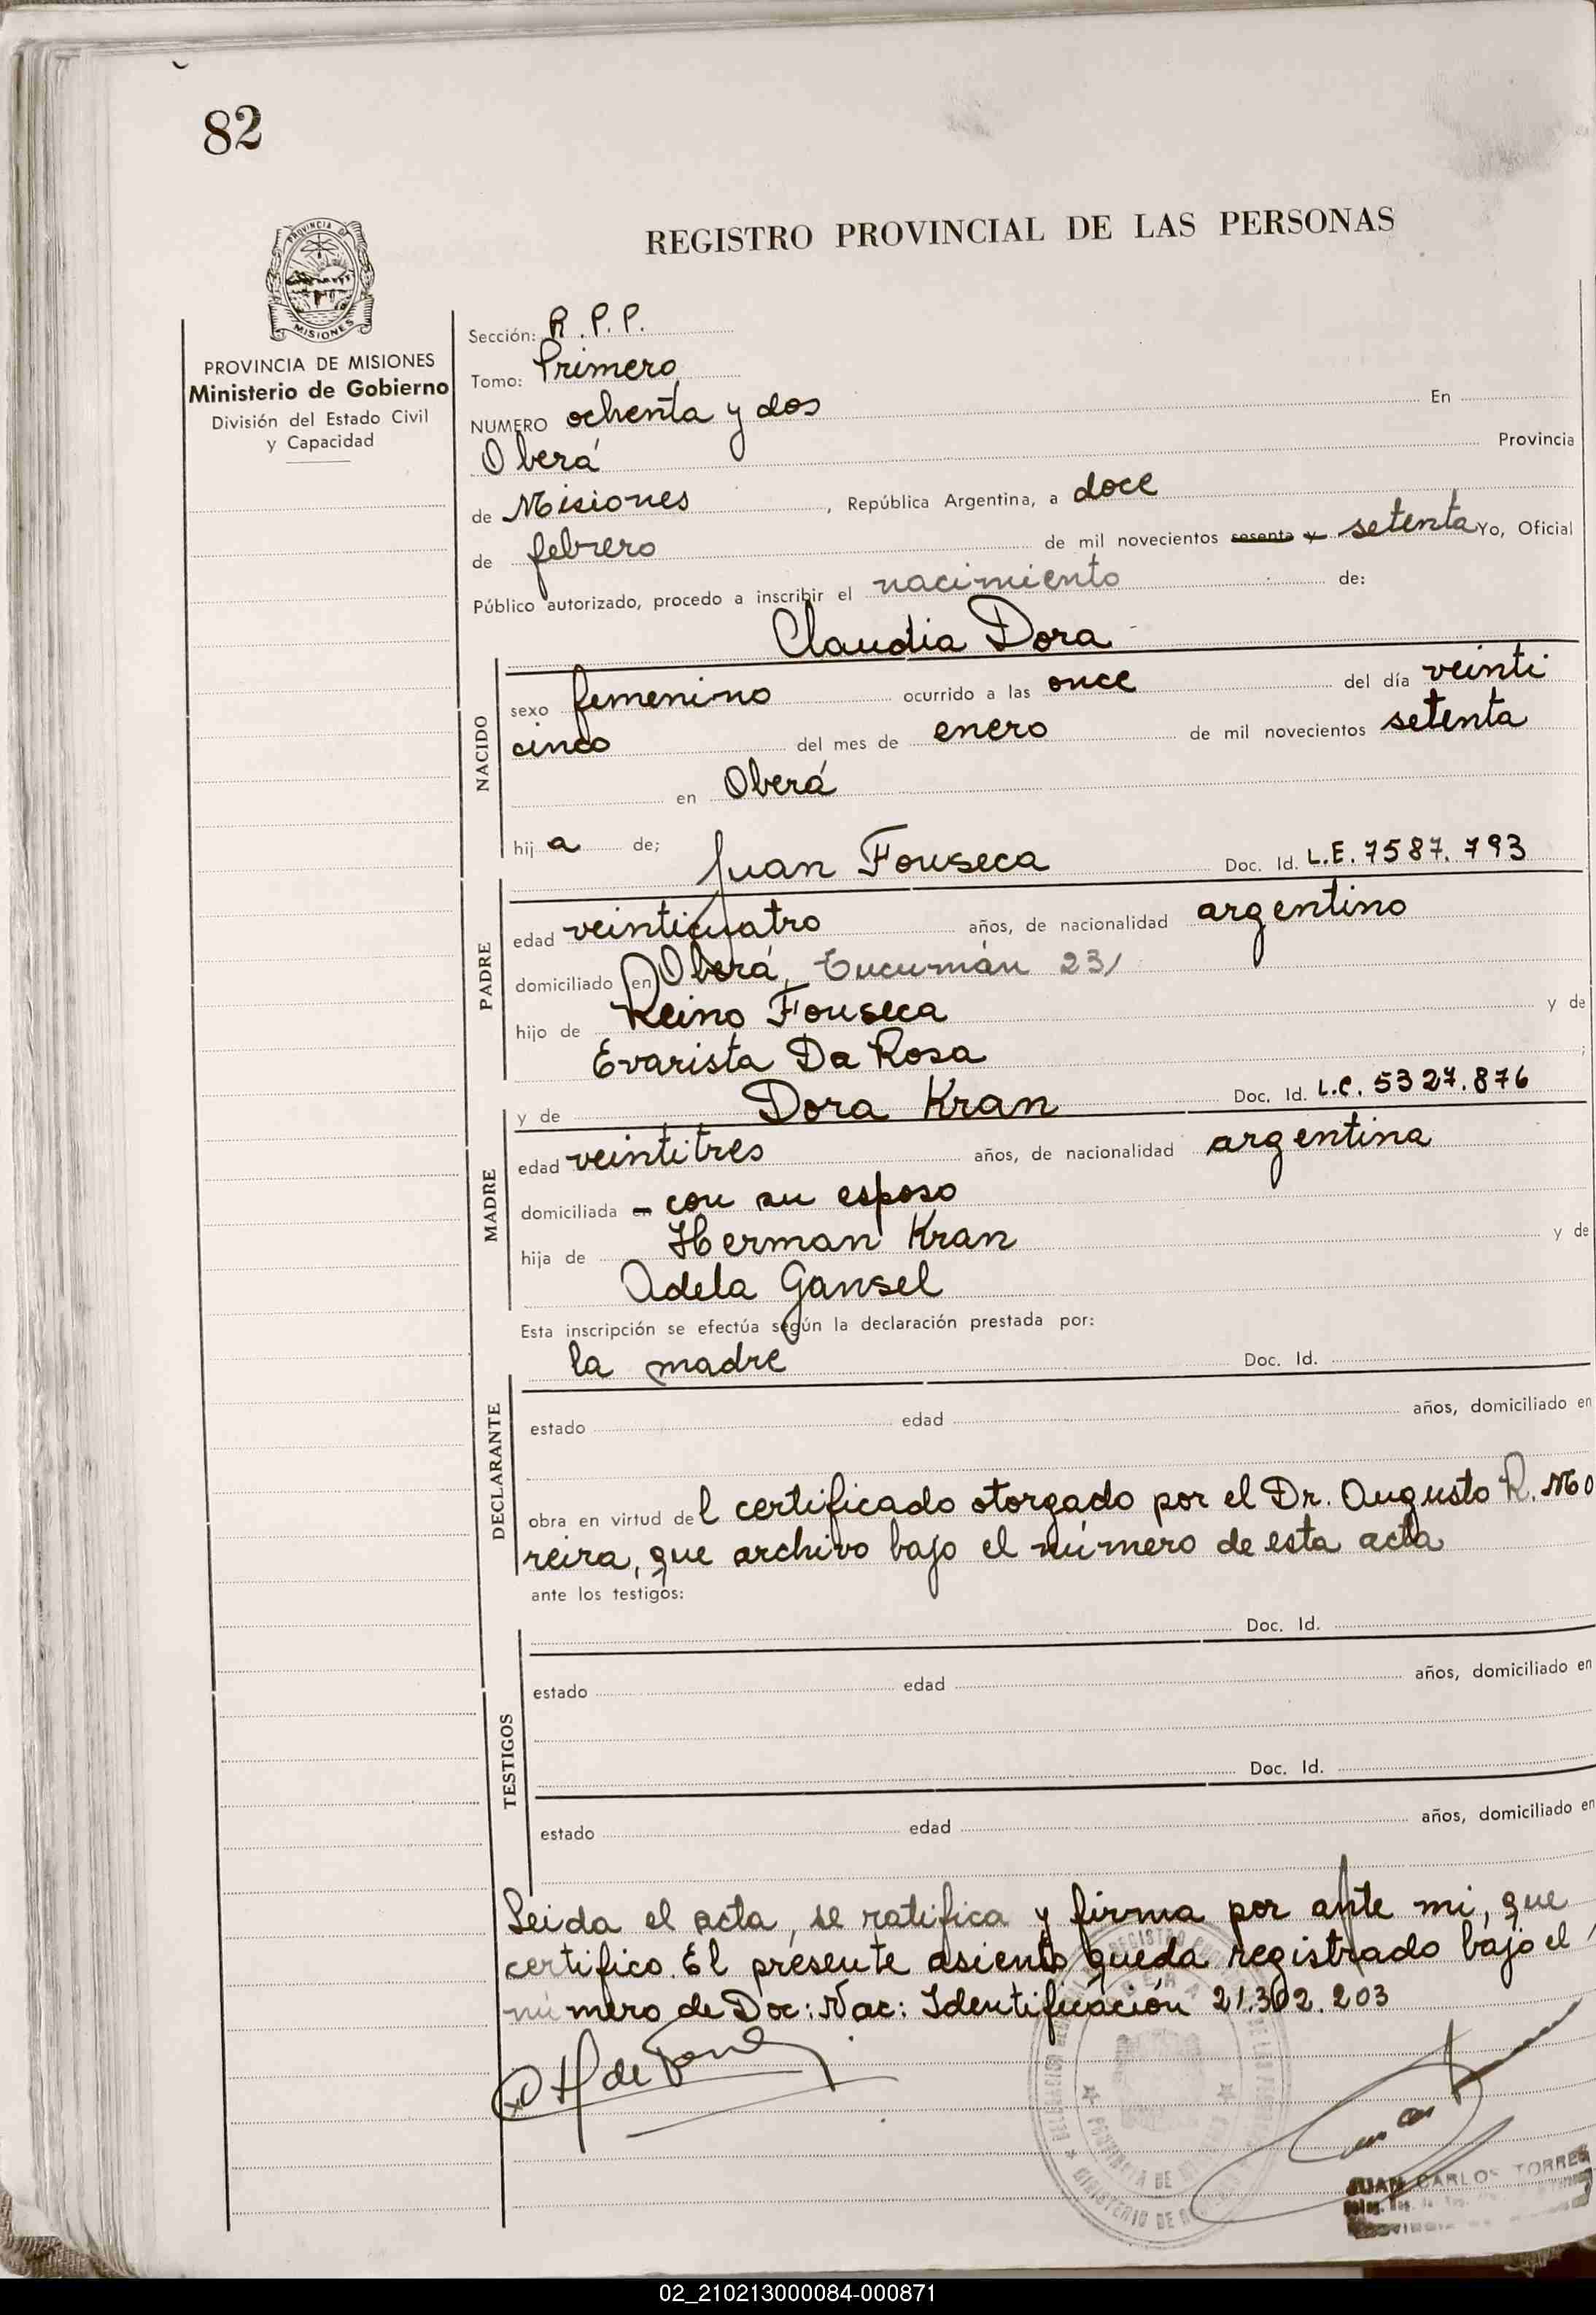 82
REGISTRO PROVINCIAL DE LAS PERSONAS
PROVINCIA DE
MISIONES
PROVINCIA DE MISIONES
Ministerio de Gobierno
División del Estado Civil
y Capacidad
Sección: R. P. P.
Tomo: Primero
NUMERO ochenta y dos En
Oberá Provincia
de Misiones, República Argentina, a doce
de febrero de mil novecientos sesenta y setenta Yo, Oficial
Público autorizado, procedo a inscribir el nacimiento de:
Claudia Dora
NACIDO
sexo femenino ocurrido a las once del día veinti
cinco del mes de enero de mil novecientos setenta
en Oberá
hij a de; Juan Fonseca Doc. Id. L.E. 7587.793
PADRE
edad veinticuatro años, de nacionalidad argentino
domiciliado en Oberá, Tucumán 231
hijo de Reino Fonseca y de
Evarista Da Rosa ;
y de Dora Kran Doc. Id. L.C. 5327.876
MADRE
edad veintitres años, de nacionalidad argentina
domiciliada en con su esposo
hija de Herman Kran y de
Adela Gansel
Esta inscripción se efectúa según la declaración prestada por:
la madre Doc. Id.
DECLARANTE
estado edad años, domiciliado en
obra en virtud del certificado otorgado por el Dr. Augusto R. Mo
reira, que archivo bajo el número de esta acta
ante los testigos:
Doc. Id.
TESTIGOS
estado edad años, domiciliado en
Doc. Id.
estado edad años, domiciliado en
Leida el acta, se ratifica y firma por ante mi, que
certifico. El presente asiento queda registrado bajo el
número de Doc: Nac: Identificación 21.302.203
OBERA
PROVINCIA DE
MINISTERIO DE
JUAN CARLOS TORRES
02_210213000084-000871